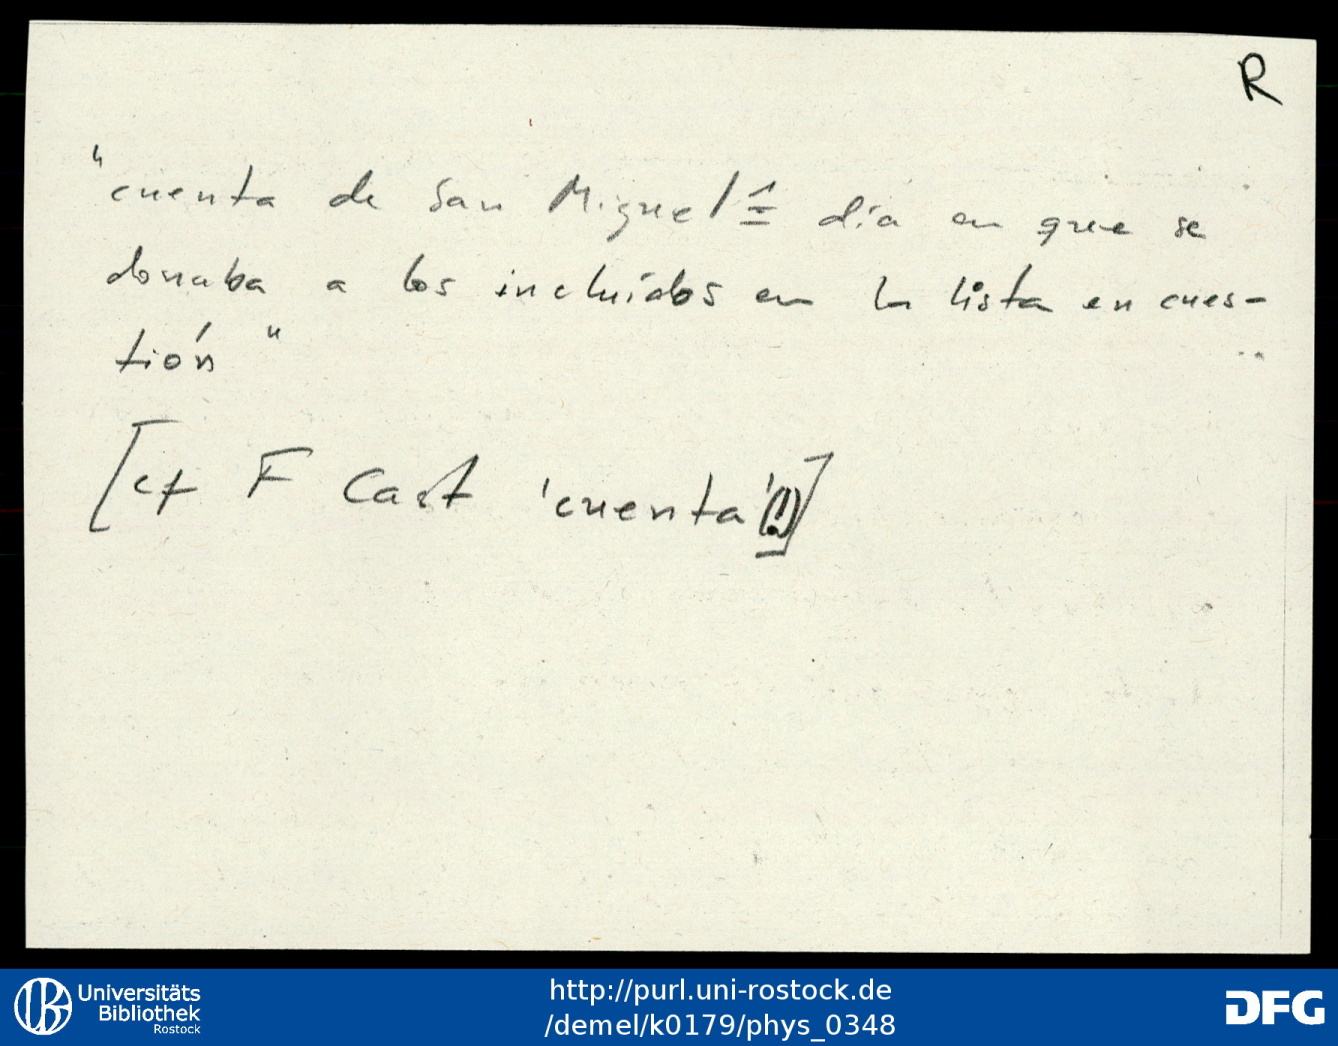 R
"cuenta de San Miguel ≙ día en que se
donaba a los incluídos en la lista en cues-
tión"
[cf F Cast 'cuenta' (!)]
Universitäts
Bibliothek
Rostock
http://purl.uni-rostock.de
/demel/k0179/phys_0348
DFG